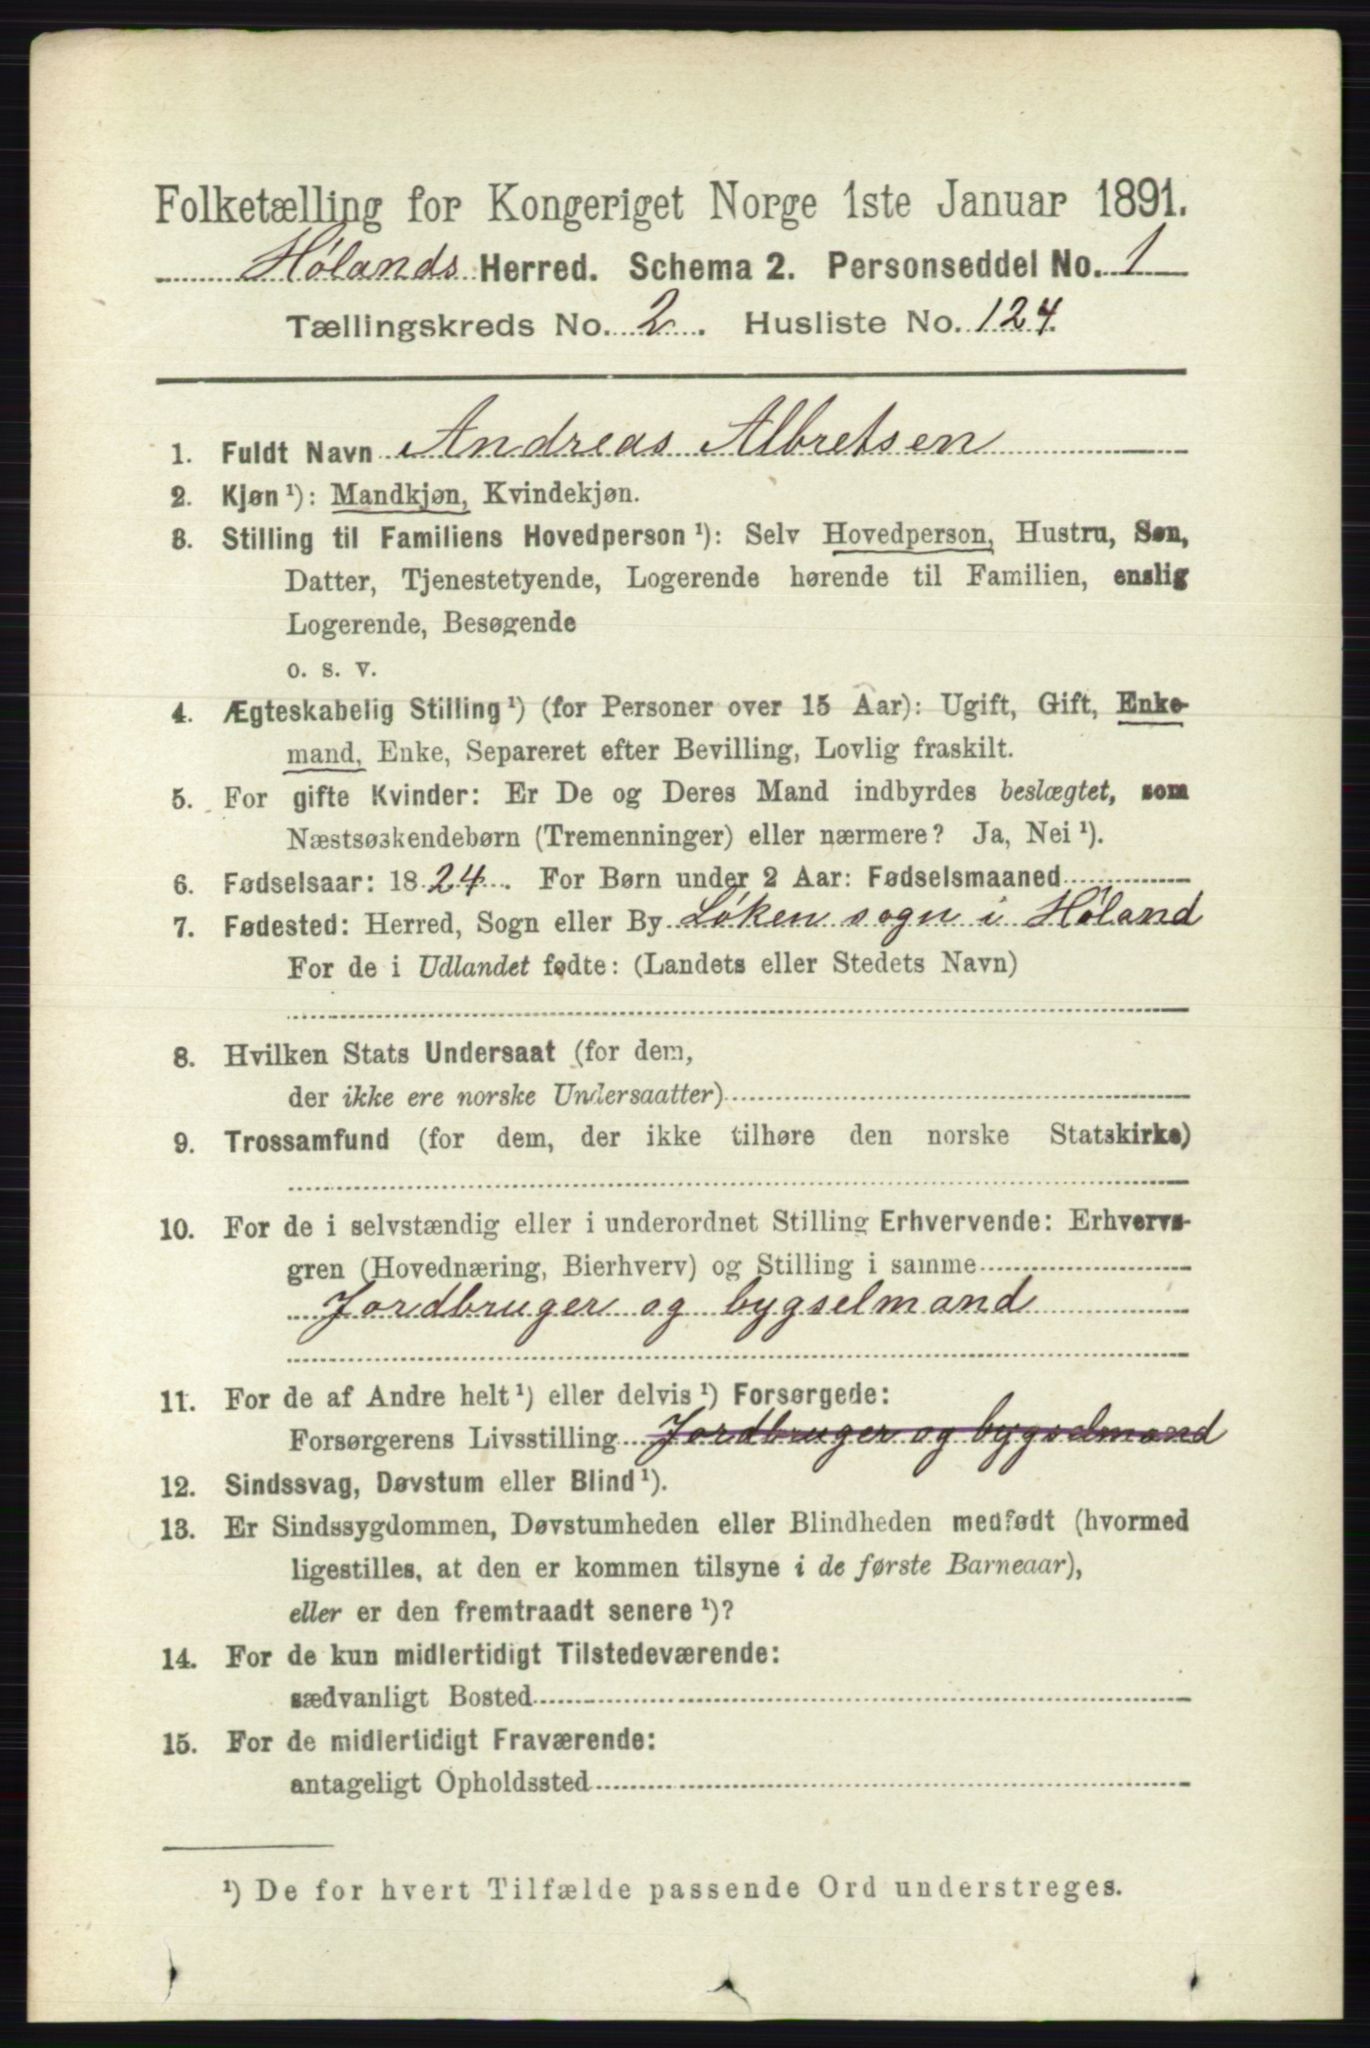 Folketælling for Kongeriget Norge 1ste Januar 1891.
Hølands Herred. Schema 2. Personseddel No. 1
Tællingskreds No. 2. Husliste No. 124.
1. Fuldt Navn Andreas Albretsen
2. Kjøn ¹): Mandkjøn, Kvindekjøn.
3. Stilling til Familiens Hovedperson ¹): Selv Hovedperson, Hustru, Søn,
Datter, Tjenestetyende, Logerende hørende til Familien, enslig
Logerende, Besøgende
o. s. v.
4. Ægteskabelig Stilling ¹) (for Personer over 15 Aar): Ugift, Gift, Enke-
mand, Enke, Separeret efter Bevilling, Lovlig fraskilt.
5. For gifte Kvinder: Er De og Deres Mand indbyrdes beslægtet, som
Næstsøskendebørn (Tremenninger) eller nærmere? Ja, Nei ¹).
6. Fødselsaar: 1824. For Børn under 2 Aar: Fødselsmaaned
7. Fødested: Herred, Sogn eller By Løken sogn i Høland
For de i Udlandet fødte: (Landets eller Stedets Navn)
8. Hvilken Stats Undersaat (for dem,
der ikke ere norske Undersaatter)
9. Trossamfund (for dem, der ikke tilhøre den norske Statskirke)
10. For de i selvstændig eller i underordnet Stilling Erhvervende: Erhvervs-
gren (Hovednæring, Bierhverv) og Stilling i samme
Jordbruger og bygselmand
11. For de af Andre helt ¹) eller delvis ¹) Forsørgede:
Forsørgerens Livsstilling Jordbruger og bygselmand
12. Sindssvag, Døvstum eller Blind ¹).
13. Er Sindssygdommen, Døvstumheden eller Blindheden medfødt (hvormed
ligestilles, at den er kommen tilsyne i de første Barneaar),
eller er den fremtraadt senere ¹)?
14. For de kun midlertidigt Tilstedeværende:
sædvanligt Bosted
15. For de midlertidigt Fraværende:
antageligt Opholdssted
¹) De for hvert Tilfælde passende Ord understreges.